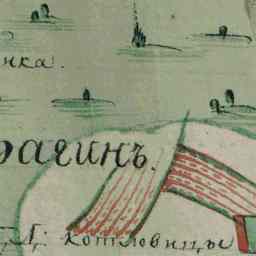 нка.
рагинъ.
Котловицы